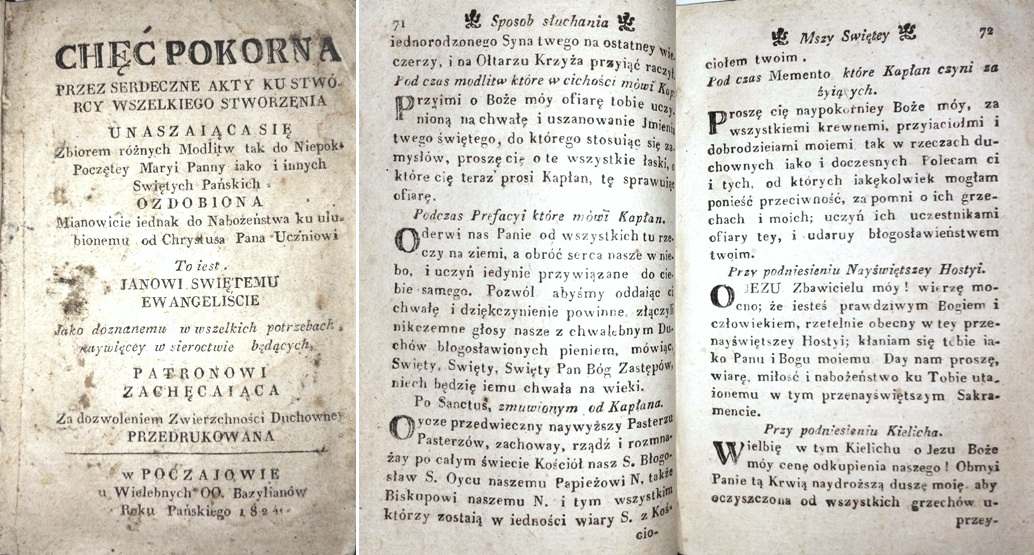 CHĘĆ POKORNA
PRZEZ SERDECZNE AKTY KU STWÓ-
RCY WSZELKIEGO STWORZENIA
UNASZAIĄCA SIĘ
Zbiorem różnych Modlitw tak do Niepok-
Poczętey Maryi Panny iako i innych
Swiętych Pańskich
OZDOBIONA
Mianowicie iednak do Nabożeństwa ku ulu-
bionemu od Chrystusa Pana Uczniowi
To iest.
JANOWI SWIĘTEMU
EWANGELIŚCIE
Jako doznanemu w wszelkich potrzebach,
naywięcey w sieroctwie będących,
PATRONOWI
ZACHĘCAIĄCA
Za dozwoleniem Zwierzchności Duchowney
PRZEDRUKOWANA
w POCZAJOWIE
u Wielebnych OO. Bazylianów
Roku Pańskiego 1824.
71 Sposob słuchania
iednorodzonego Syna twego na ostatney wie-
czerzy, i na Ołtarzu Krzyża przyiąć raczył
Pod czas modlitw które w cichości mówi Kap.
Przyimi o Boże móy ofiarę tobie uczy-
nioną na chwałę i uszanowanie Jmienia
twego świętego, do którego stosuiąc się za
mysłów, proszę cię o te wszystkie łaski, o
które cię teraz prosi Kapłan, tę sprawuiąc
ofiarę.
Podczas Prefacyi które mówi Kapłan.
Oderwi nas Panie od wszystkich tu rze-
czy na ziemi, a obróć serca nasze w nie-
bo, i uczyń iedynie przywiązane do cie-
bie samego. Pozwól abyśmy oddaiąc ci
chwałę i dziękczynienie powinne, złączyli
nikczemne głosy nasze z chwalebnym Du-
chów błogosławionych pieniem, mówiąc,
Swięty, Swięty, Swięty Pan Bóg Zastępów,
niech będzie iemu chwała na wieki.
Po Sanctus, zmuwionym od Kapłana.
Oycze przedwieczny naywyższy Pasterzu
Pasterzów, zachoway, rządź i rozmna-
żay po całym świecie Kościół nasz S. Błogo-
sław S. Oycu naszemu Papieżowi N, także
Biskupowi naszemu N. i tym wszystkim
którzy zostaią w iedności wiary S. z Koś-
cio-
Mszy Swiętey 72
ciołem twoim.
Pod czas Memento które Kapłan czyni za
żyiących.
Proszę cię naypokorniey Boże móy, za
wszystkiemi krewnemi, przyiaciołmi i
dobrodzieiami moiemi tak w rzeczach du-
chownych iako i doczesnych Polecam ci
i tych, od których iakękolwiek mogłam
ponieść przeciwność, zapomni o ich grze-
chach i moich; uczyń ich uczestnikami
ofiary tey, i udaruy błogosławieństwem
twoim.
Przy podniesieniu Nayświętszey Hostyi.
O JEZU Zbawicielu móy! wierzę mo-
cno; że iesteś prawdziwym Bogiem i
człowiekiem, rzetelnie obecny w tey prze-
nayświętszey Hostyi; kłaniam się tobie ia-
ko Panu i Bogu moiemu Day nam proszę,
wiarę, miłość i nabożeństwo ku Tobie uta-
ionemu w tym przenayświętszym Sakra-
mencie.
Przy podniesieniu Kielicha.
Wielbię w tym Kielichu o Jezu Boże
móy cenę odkupienia naszego! Obmyi
Panie tą Krwią naydroższą duszę moię, aby
oczyszczona od wszystkich grzechów u-
przey-